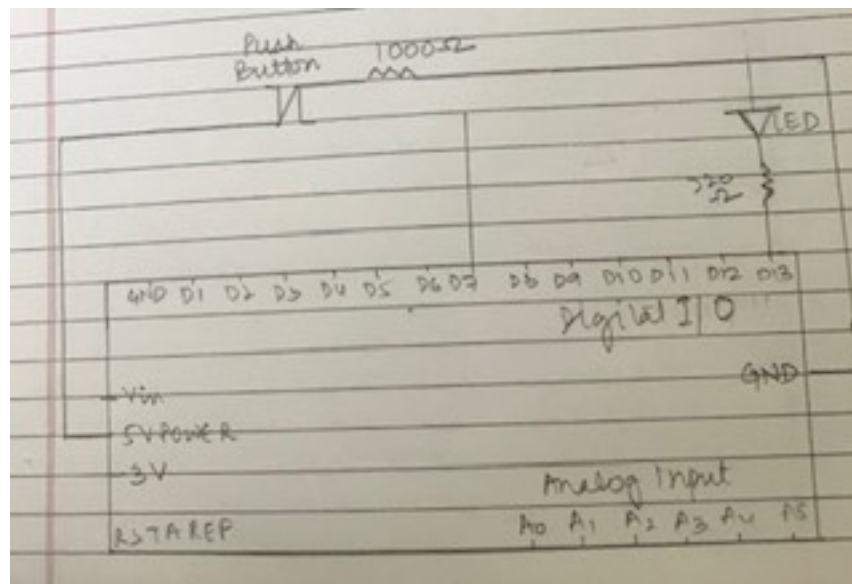 Push
Button
1000Ω
LED
Ω
GND D1 D2 D3 D4 D5 D6 D7 D8 D9 D10 D11 D12 D13
Digital I/O
GND
Vin
5V POWER
3V
Analog Input
A0 A1 A2 A3 A4 A5